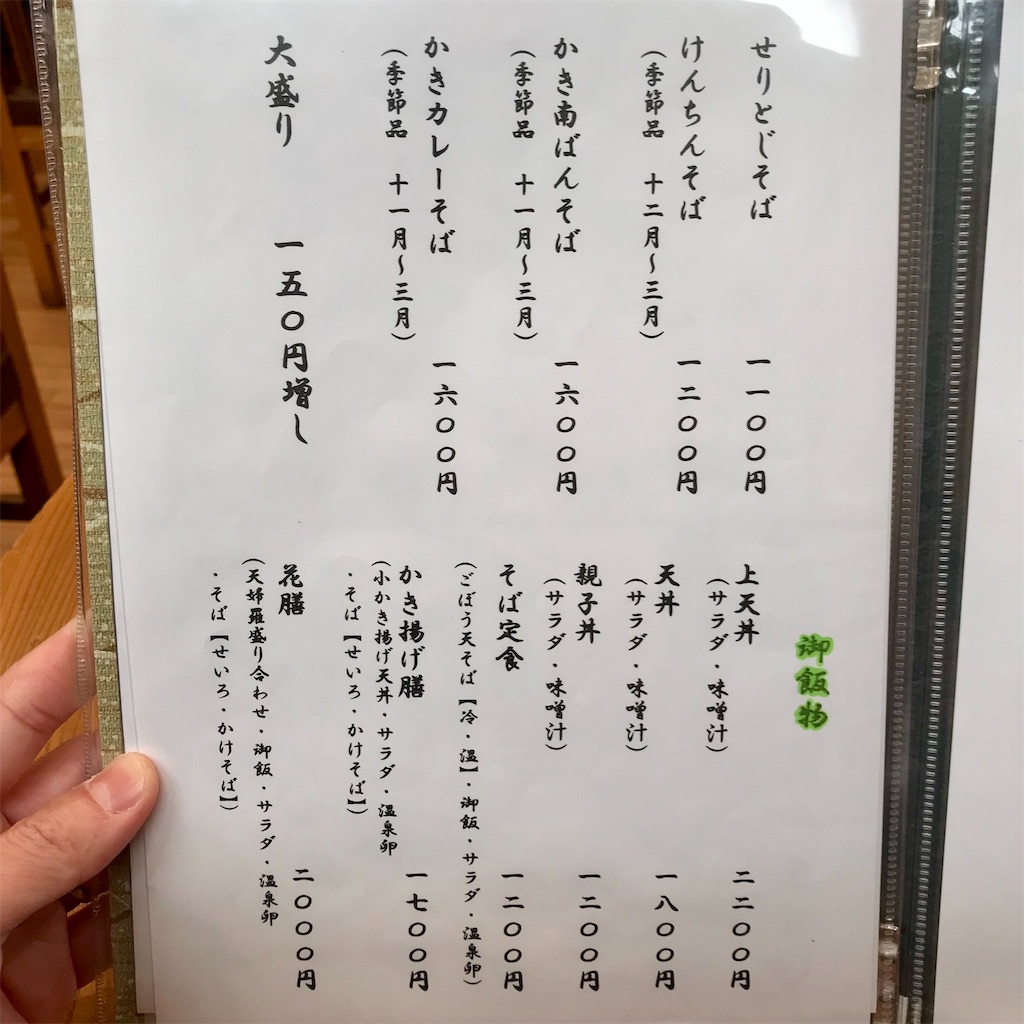 せりとじそば 一一〇〇円
けんちんそば 一二〇〇円
(季節品 十二月～三月)
かき南ばんそば 一六〇〇円
(季節品 十一月～三月)
かきカレーそば 一六〇〇円
(季節品 十一月～三月)
大盛り 一五〇円増し
御飯物
上天丼 二二〇〇円
(サラダ・味噌汁)
天丼 一八〇〇円
(サラダ・味噌汁)
親子丼 一二〇〇円
(サラダ・味噌汁)
そば定食 一二〇〇円
(ごぼう天そば【冷・温】・御飯・サラダ・温泉卵)
かき揚げ膳 一七〇〇円
(小かき揚げ天丼・サラダ・温泉卵
・そば【せいろ・かけそば】)
花膳 二〇〇〇円
(天婦羅盛り合わせ・御飯・サラダ・温泉卵
・そば【せいろ・かけそば】)